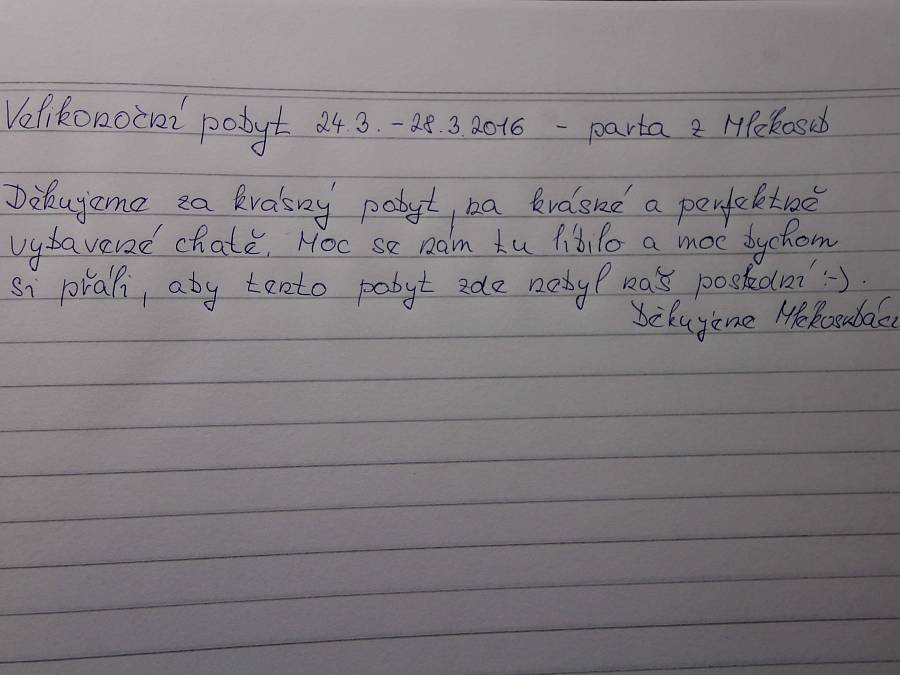 Velikonoční pobyt 24.3. - 28.3.2016 - parta z Mlékosrb
Děkujeme za krásný pobyt, na krásné a perfektně
vybavené chatě. Moc se nám tu líbilo a moc bychom
si přáli, aby tento pobyt zde nebyl náš poslední :-).
Děkujeme Mlékosrbáci